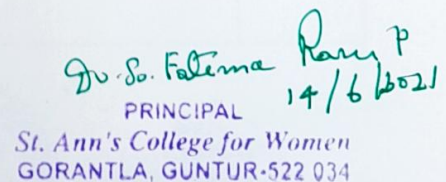 Dr. Sr. Fatima Rani P
14/6/2021
PRINCIPAL
St. Ann's College for Women
GORANTLA, GUNTUR-522 034